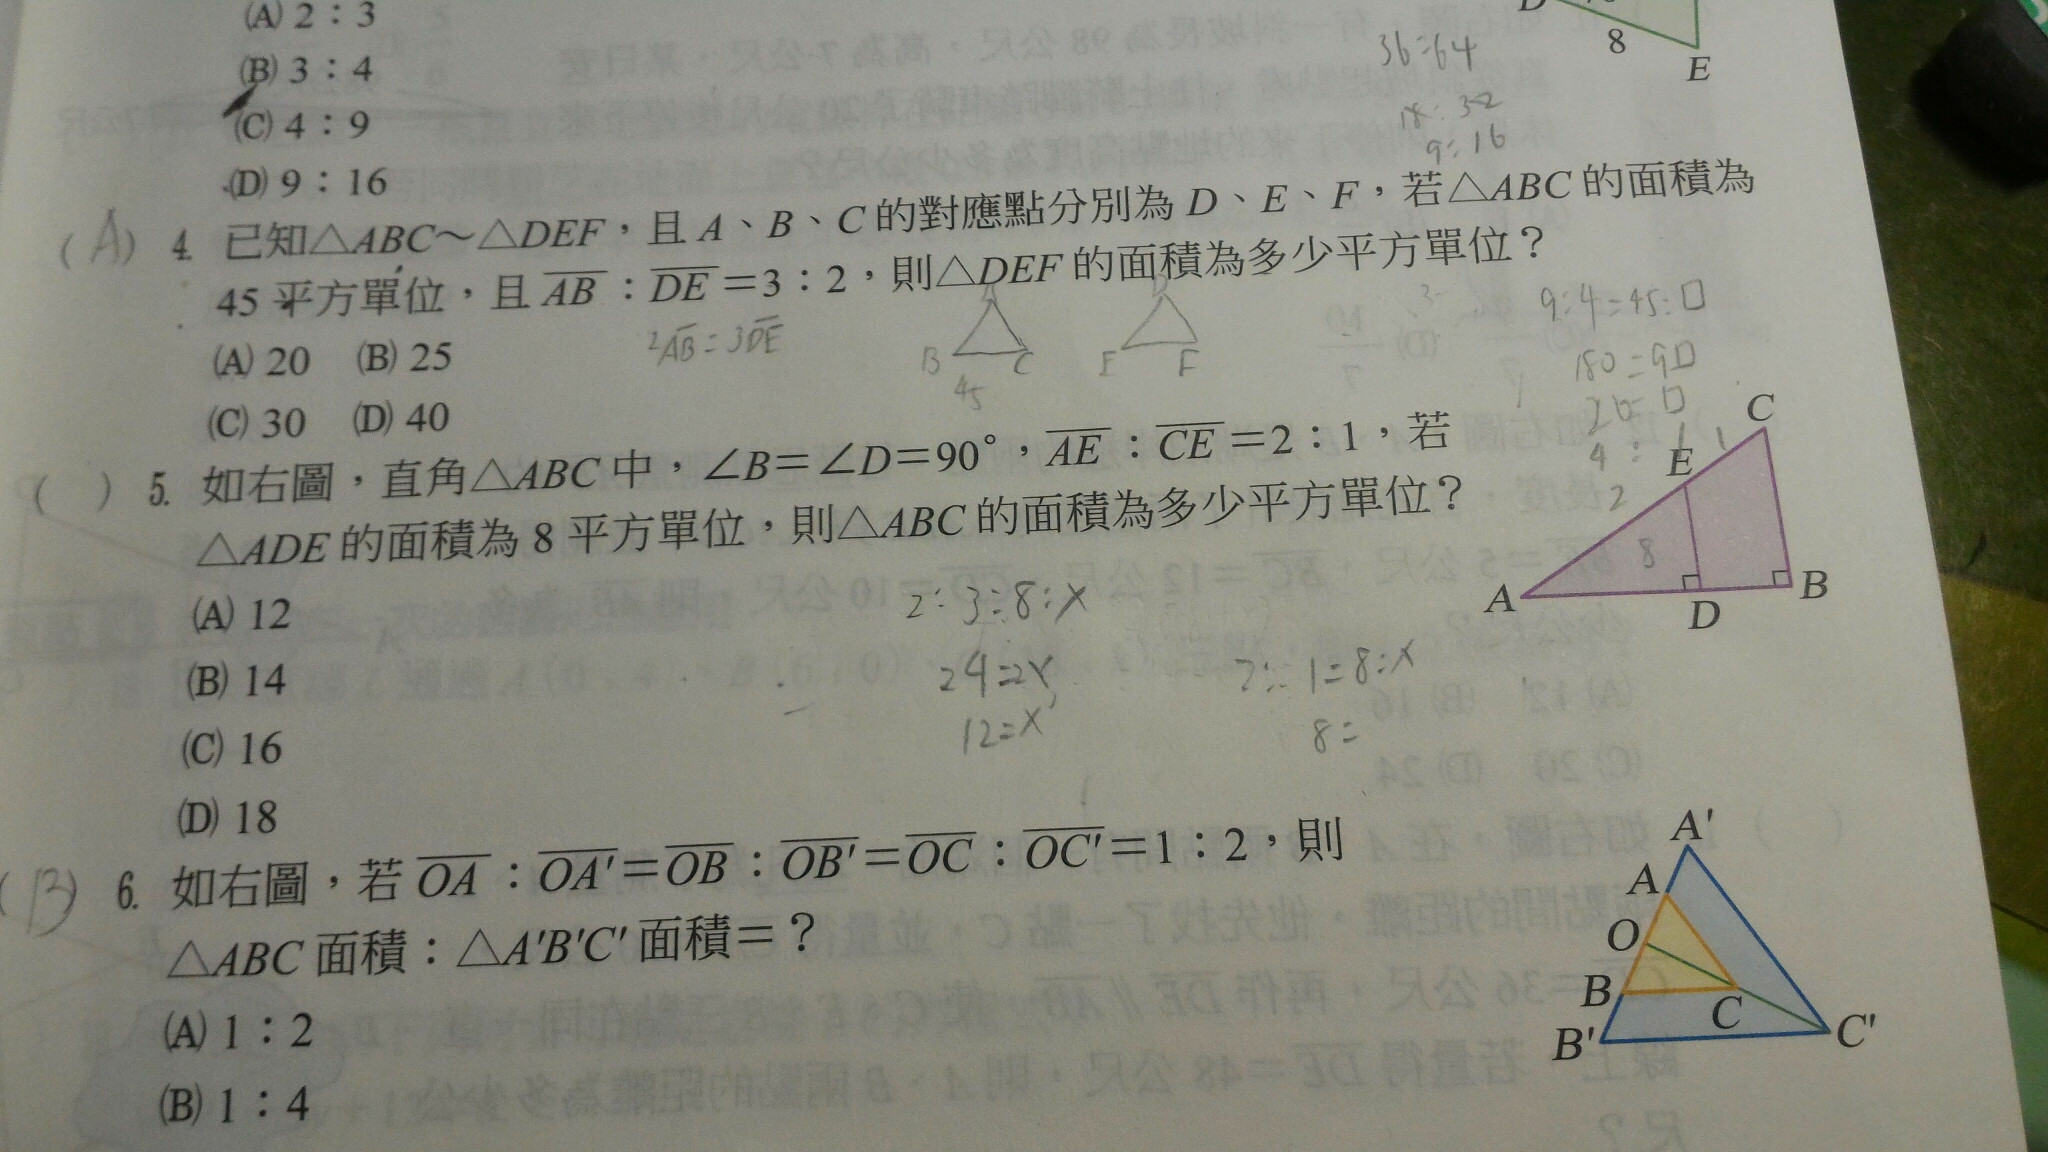 (A) 2：3
(B) 3：4
(C) 4：9
(D) 9：16
8
E
36:64
18:32
9:16
(A) 4. 已知△ABC～△DEF，且 A、B、C 的對應點分別為 D、E、F，若△ABC 的面積為
45 平方單位，且 AB：DE＝3：2，則△DEF 的面積為多少平方單位？
(A) 20 (B) 25
(C) 30 (D) 40
2AB=3DE
A
B C
45
D
E F
9:4=45:□
180=9□
20=□
4:
( ) 5. 如右圖，直角△ABC 中，∠B＝∠D＝90°，AE：CE＝2：1，若
△ADE 的面積為 8 平方單位，則△ABC 的面積為多少平方單位？
(A) 12
(B) 14
(C) 16
(D) 18
2:3=8:x
24=2x
12=x
2:1=8:x
8=
C
1
E
2
8
A
D
B
(B) 6. 如右圖，若 OA：OA'＝OB：OB'＝OC：OC'＝1：2，則
△ABC 面積：△A'B'C' 面積＝？
(A) 1：2
(B) 1：4
A'
A
O
B
C
B'
C'